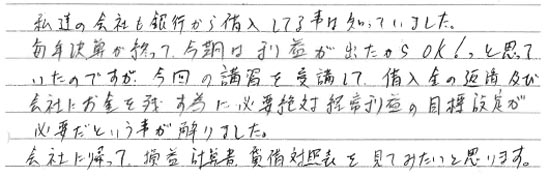 私達の会社も銀行から借入してる事は知っていました。
毎年決算が終って、今期は利益が出たからOK!っと思って
いたのですが、今回の講習を受講して、借入金の返済及び
会社にお金を残す為に必要絶対経常利益の目標設定が
必要だという事が解りました。
会社に帰って、損益計算書、貸借対照表を見てみたいと思います。